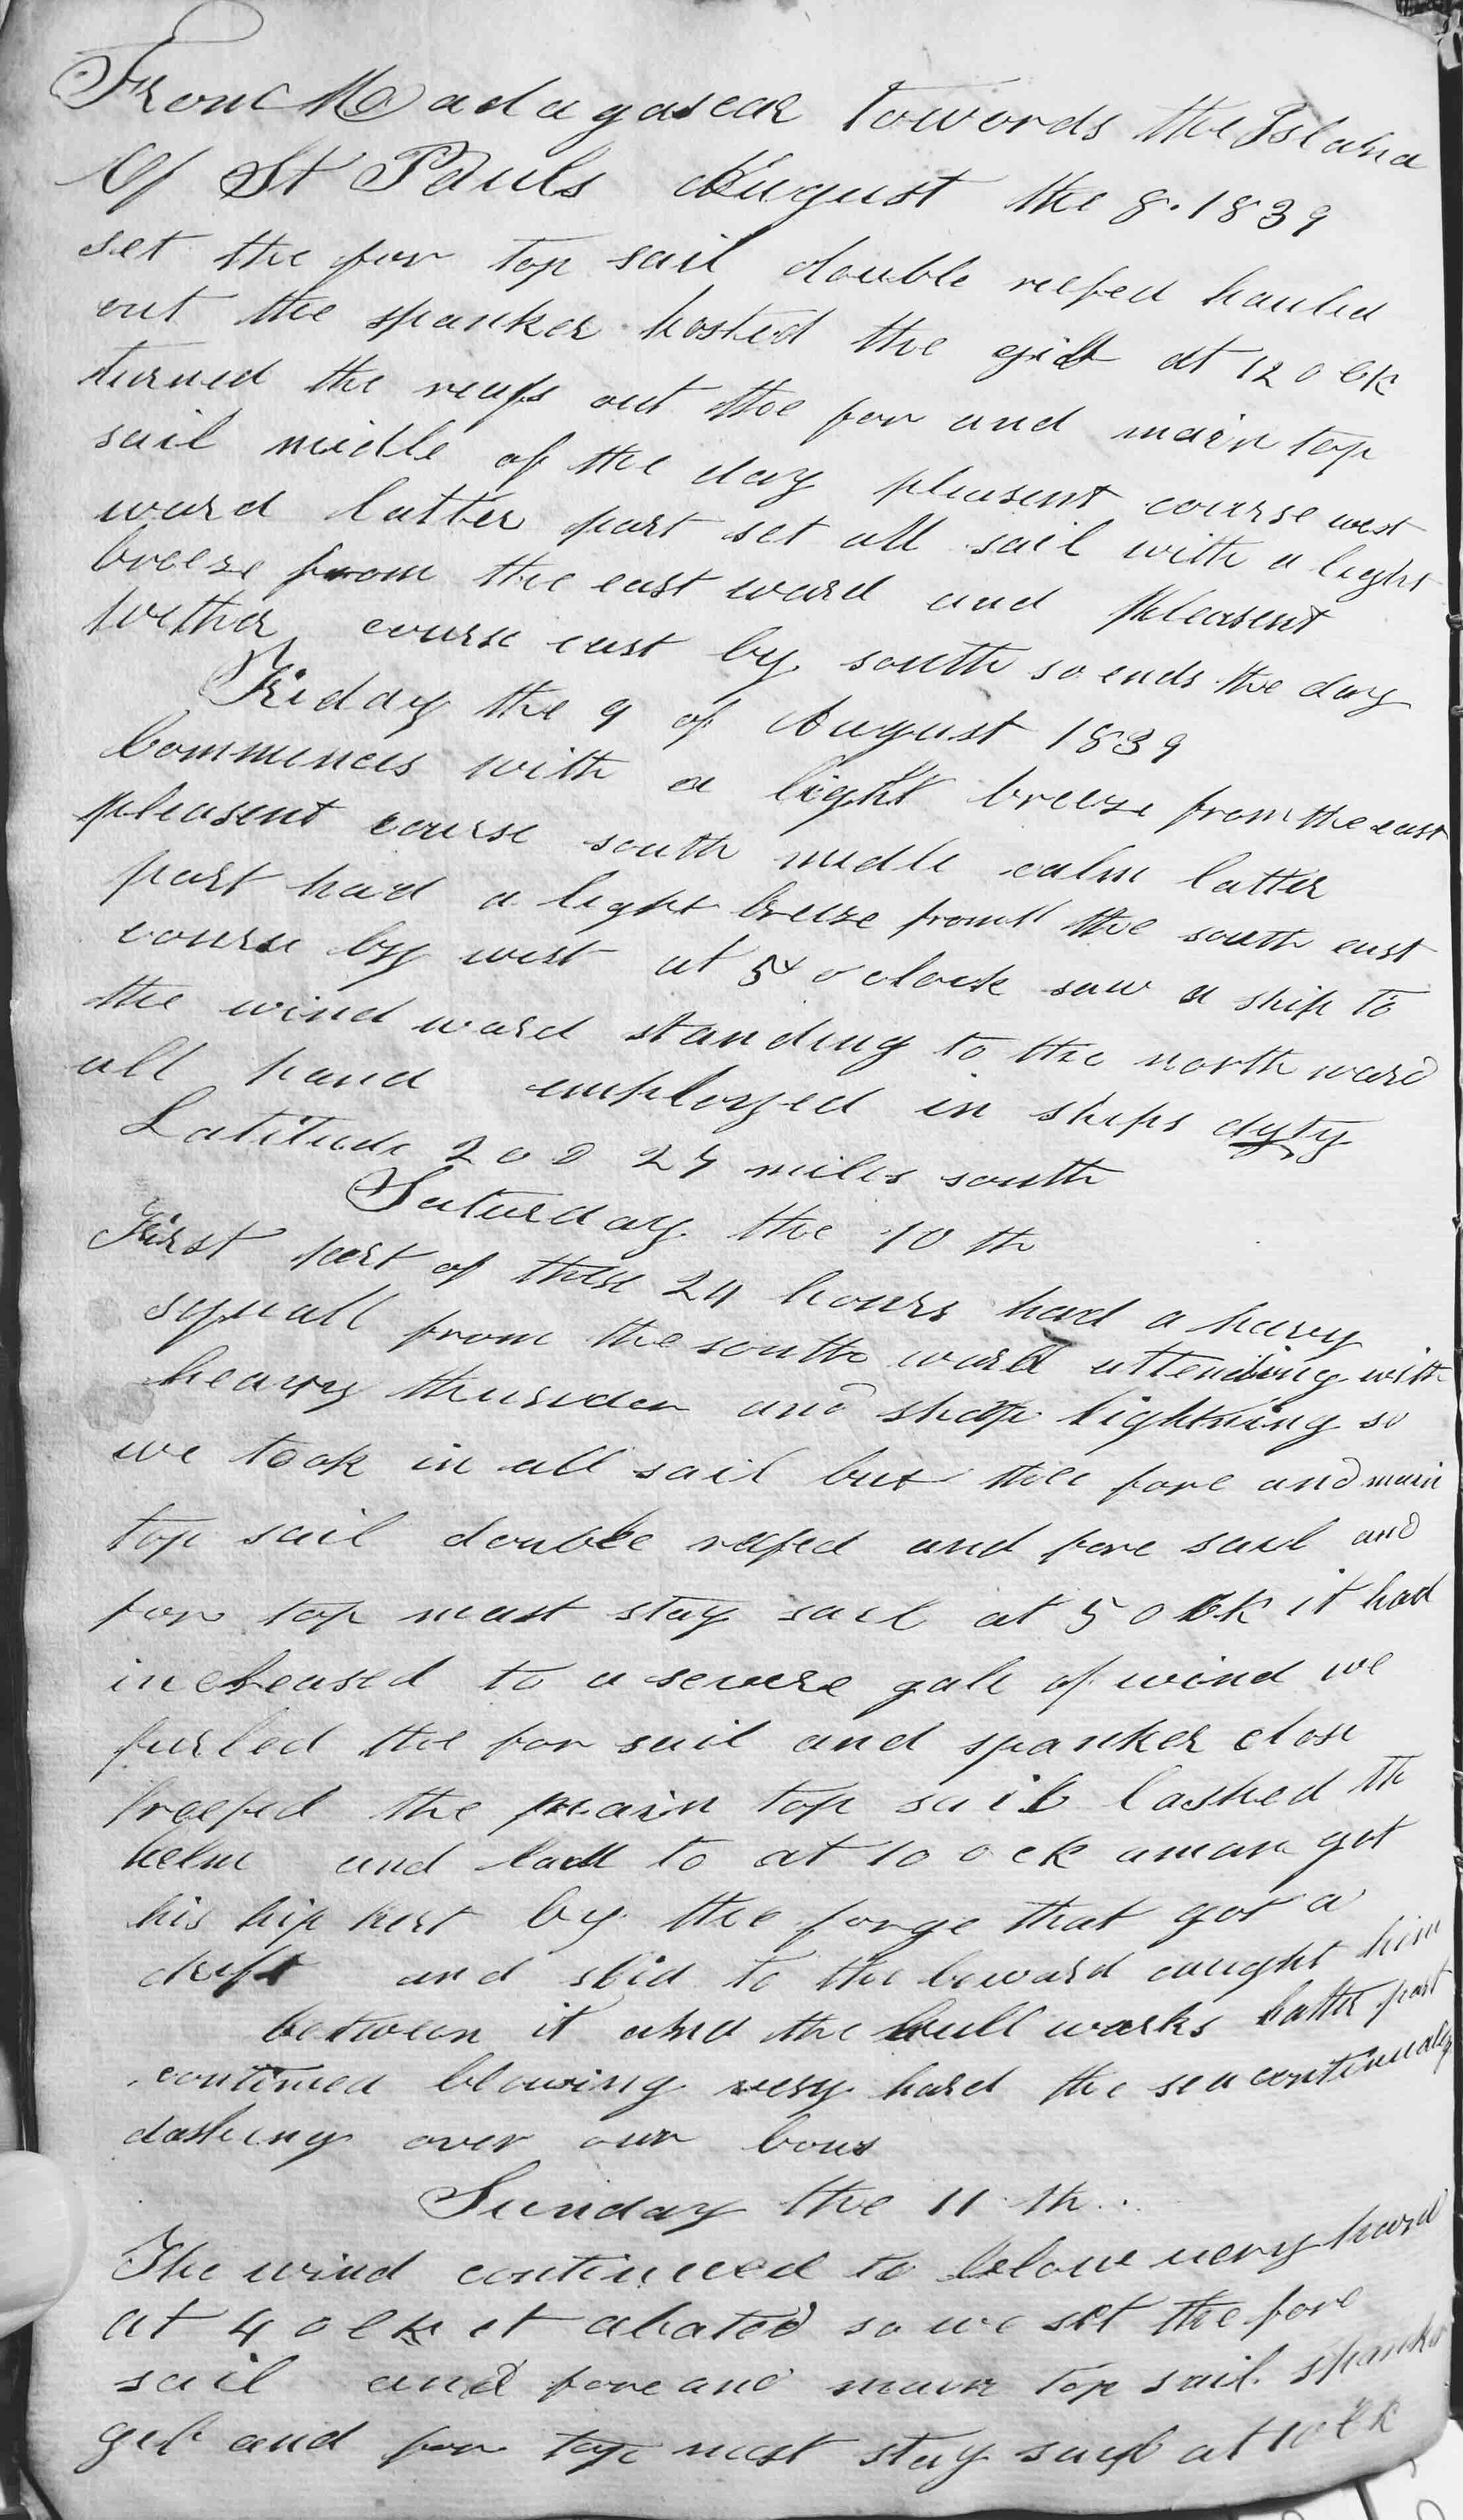 From Madagascar Towords the Island
Of St Pauls August the 8. 1839
set the for top sail double reefed hauled
out the spanker hosted the gib at 12 oclk
turned the reefs out the for and main top
sail midle of the day pleasent course west
ward latter part set all sail with a light
breeze from the east ward and pleasent
wether course east by south so ends the day
Friday the 9 of August 1839
Commences with a light breeze from the east
pleasent course south midle calm latter
part had a light breeze from the south east
course by west at 5 o clock saw a ship to
the wind ward standing to the north ward
all hand employed in ships duty
Latitude 20 0 24 miles south
Saturday the 10 th
First part of these 24 hours had a havy
squall from the south ward attending with
heavy thunder and sharp lightning so
we took in all sail but the fore and main
top sail double refed and fore sail and
for top mast stay sail at 5 oclk it had
increased to a severe gale of wind we
furled the for sail and spanker close
reefed the main top sail lashed th
helm and laid to at 10 ock a man got
his hip hurt by the forge that got a
drift and slid to the leward caught him
between it and the bull works latter part
continued blowing very hard the sea continualy
dashing over our bows
Sunday the 11 th..
The wind continued to blow very hard
at 4 oclk it abated so we set the fore
sail and fore and main top sail. spanker
geb and for top mast stay sail at 10 clk